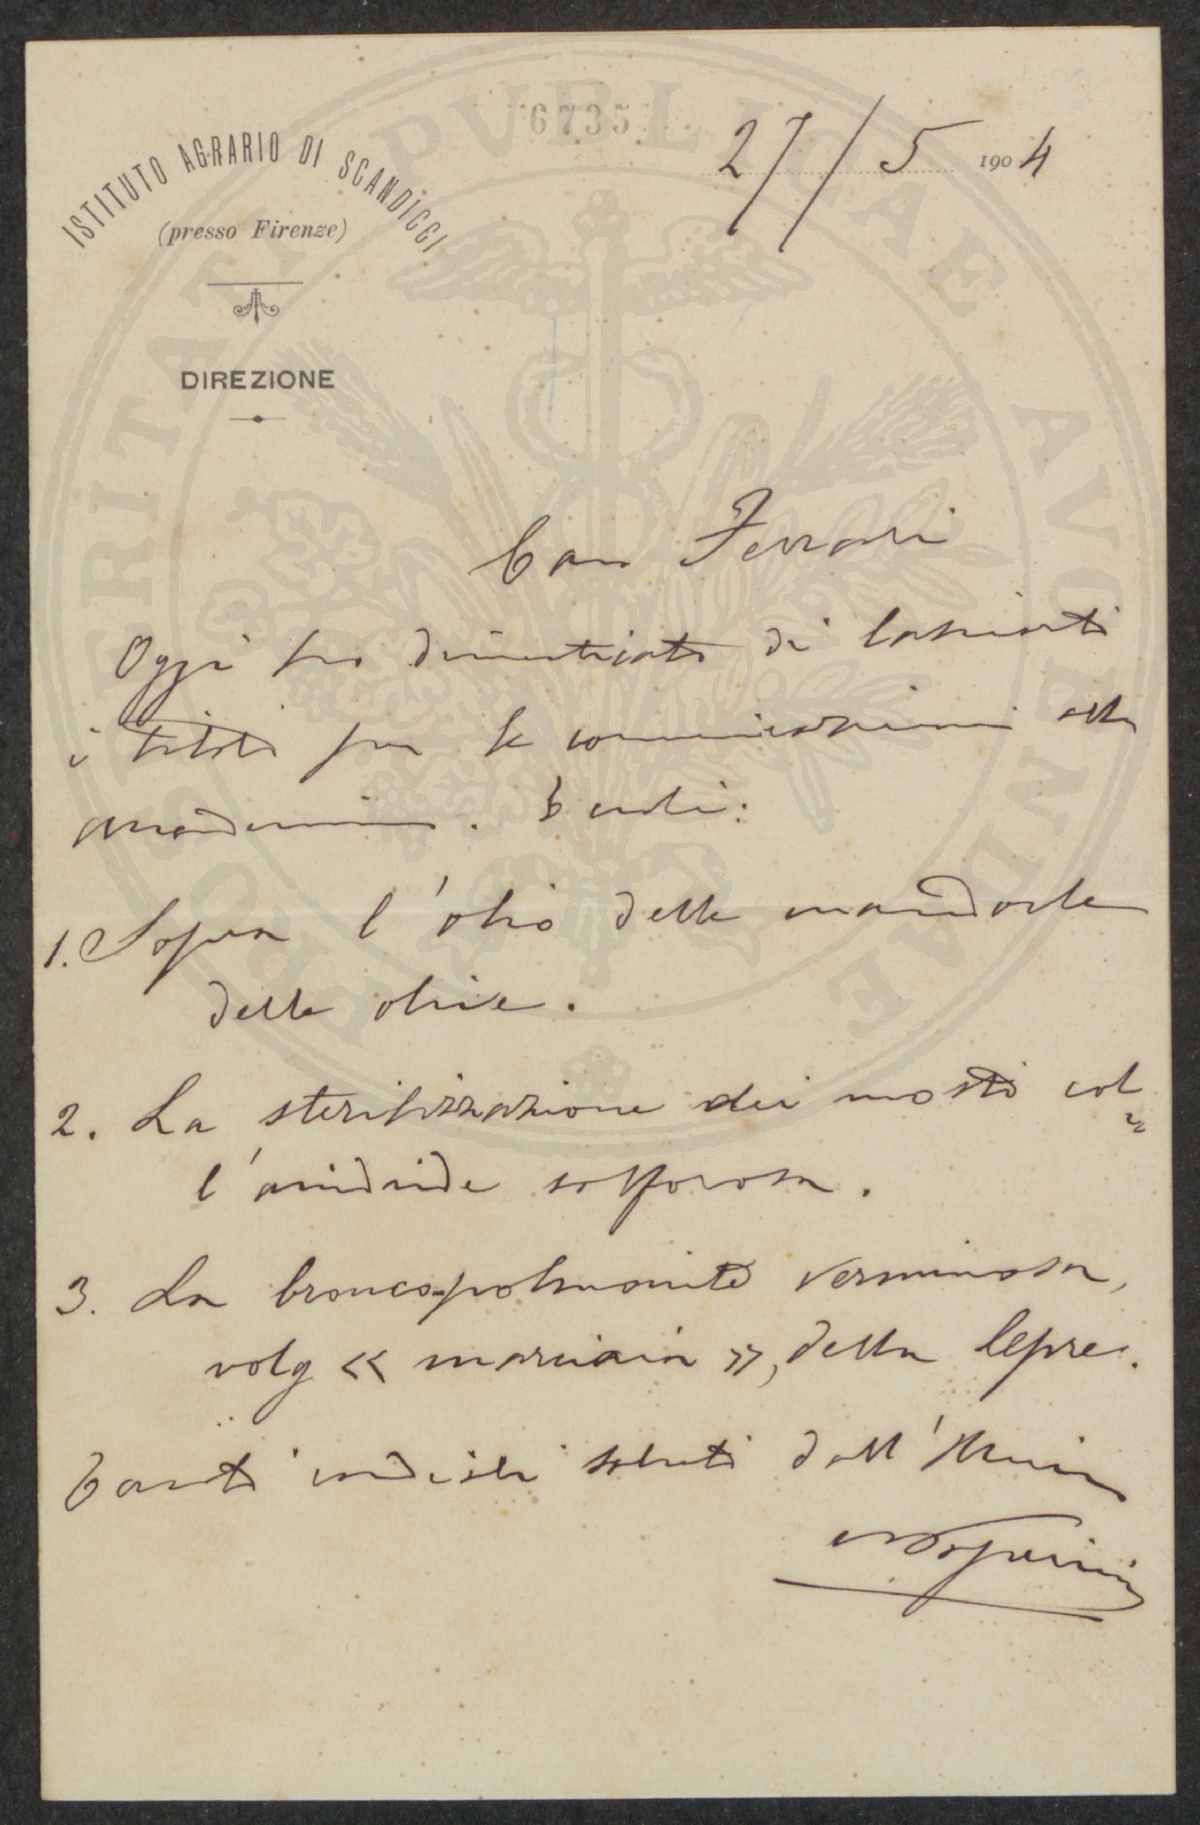 6735
27/5 1904
ISTITUTO AGRARIO DI SCANDICCI
(presso Firenze)
DIREZIONE
Caro Ferrari
Oggi ho dimenticato di lasciarti
i titoli per le comunicazioni alla
accademia. Eccoli:
1. Sopra l'olio delle mandorle
delle olive.
2. La sterilizzazione dei mosti col
l'anidride solforosa.
3. La broncopolmonite verminosa,
volg « marciaia », della lepre.
Tanti cordiali saluti dall'Amico
PROSPERITATI PVBLICAE AVGENDAE